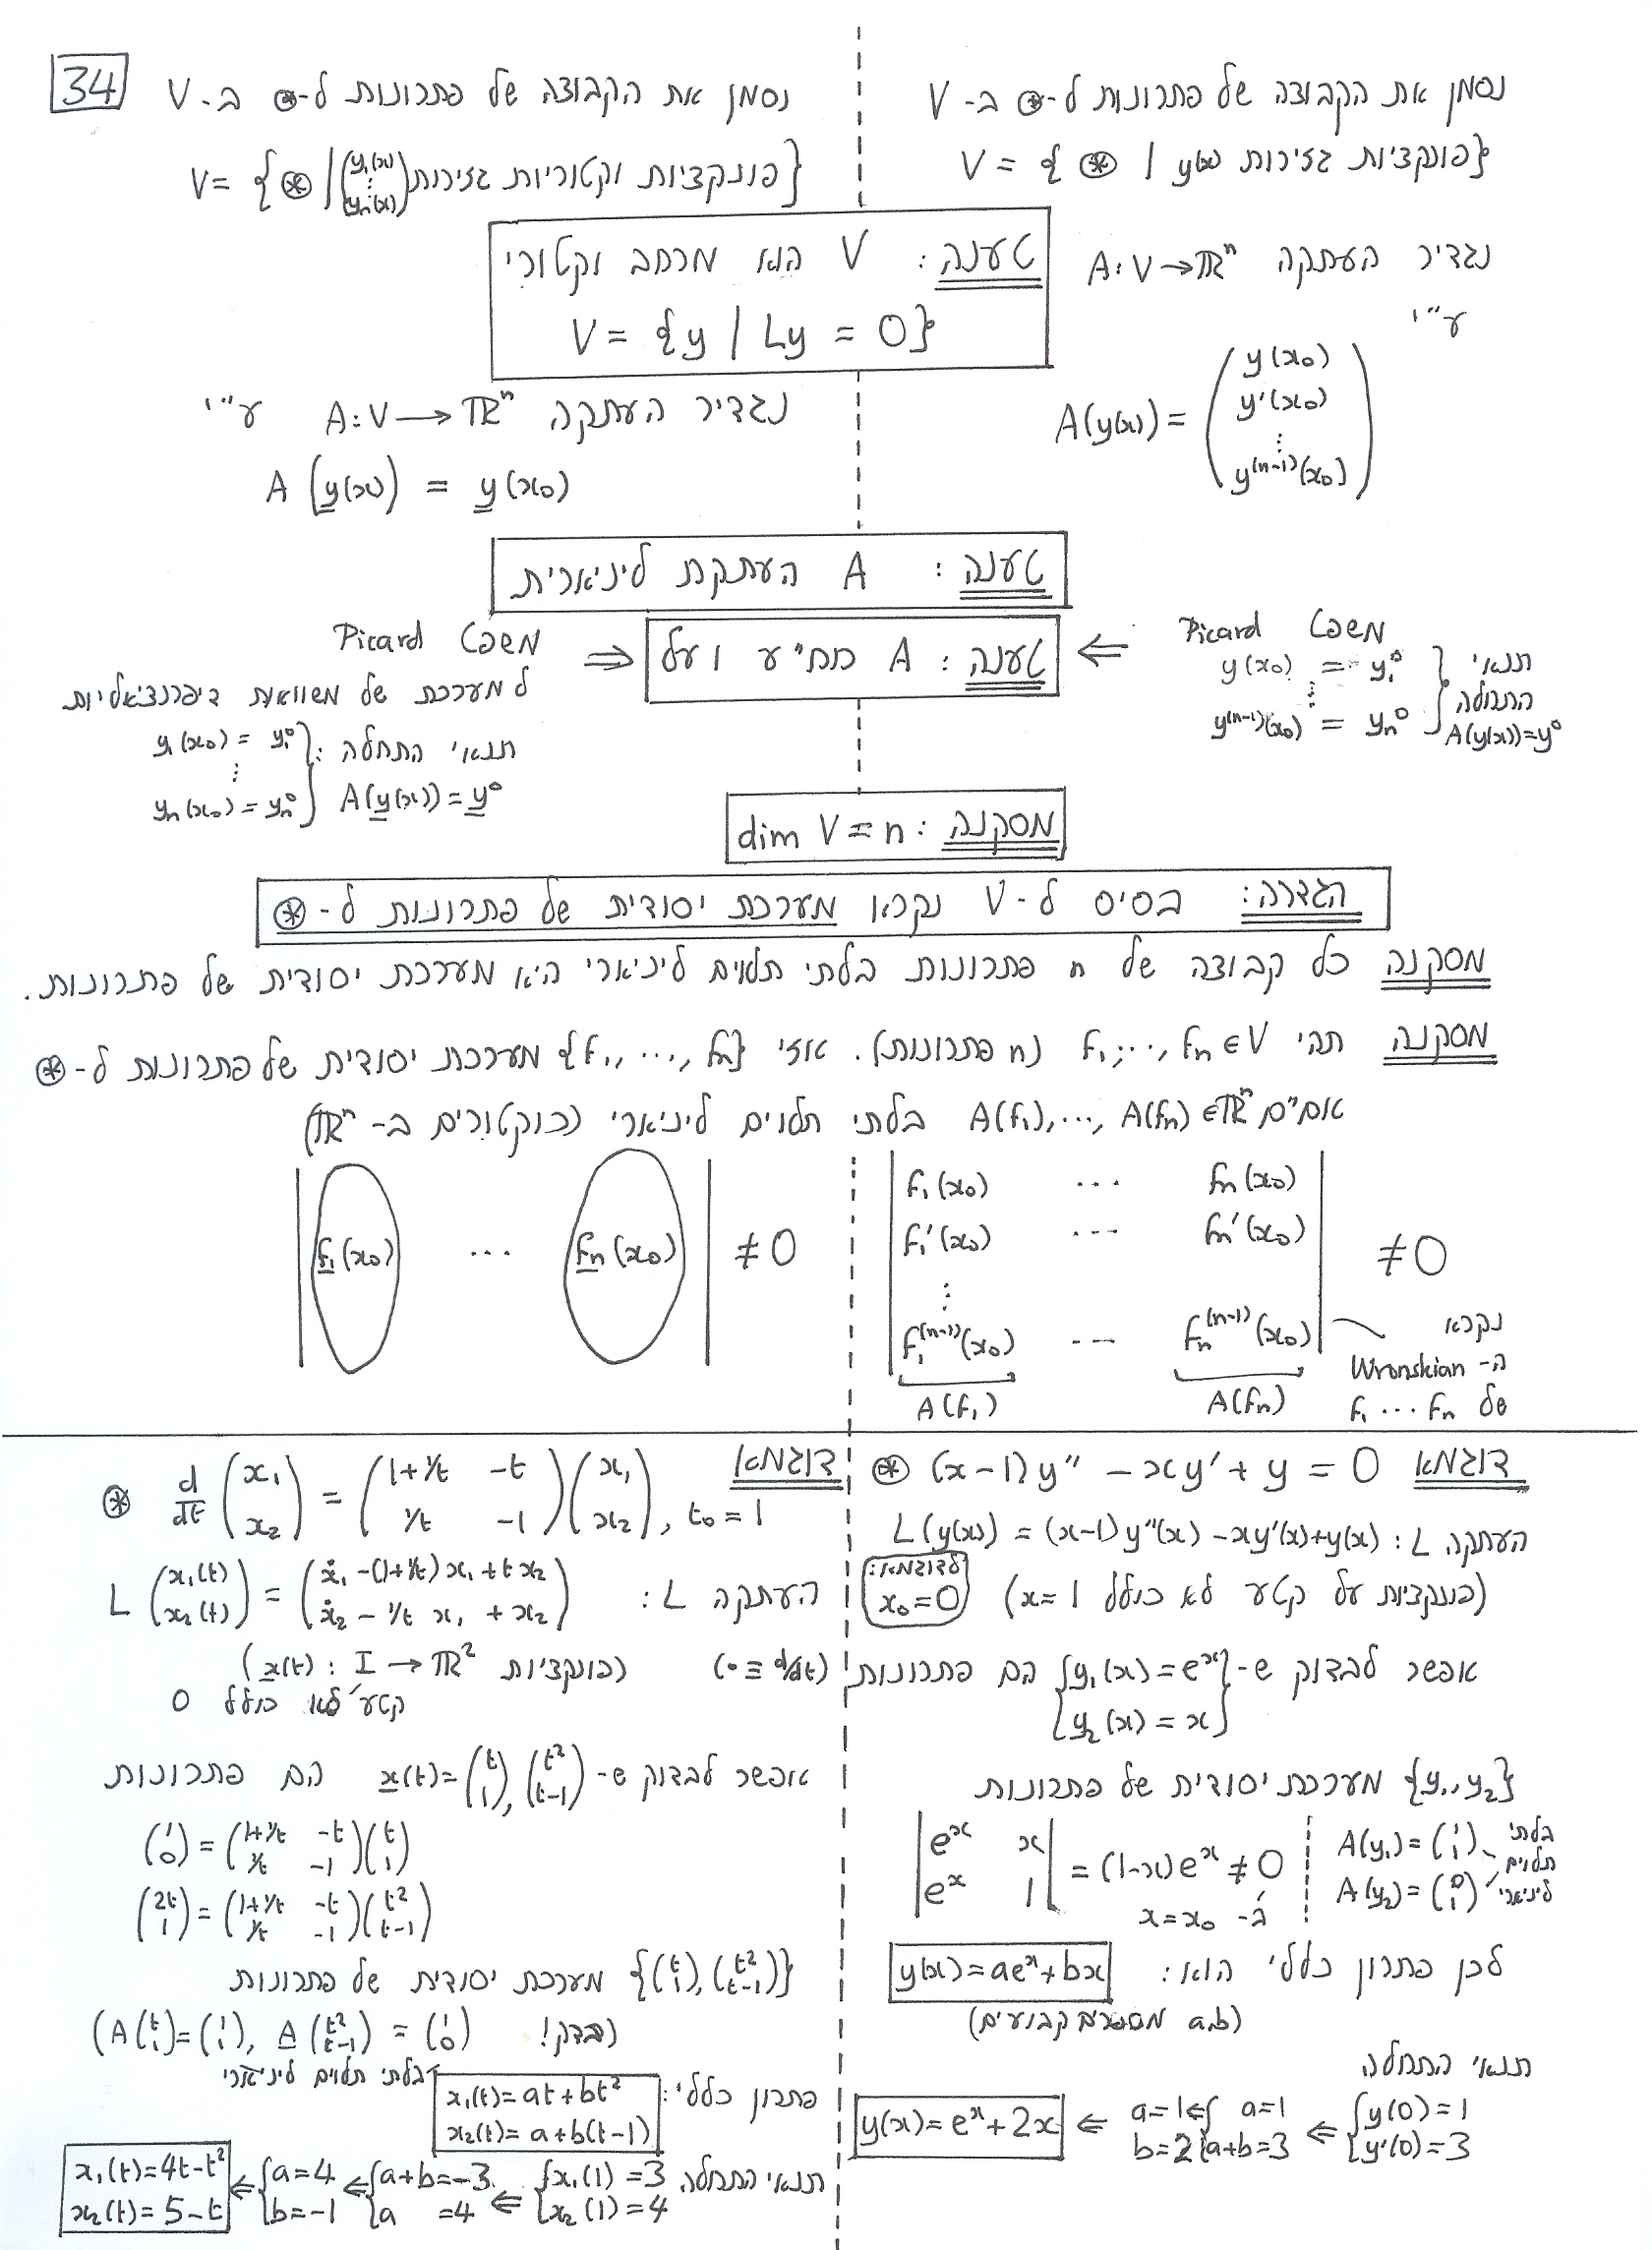 34
נסמן את הקבוצה של פתרונות ל-⊛ ב-V
V = { ⊛ | y(x) פונקציות גזירות }
נגדיר העתקה A: V → ℝⁿ
ע"י
A(y(x)) = ( y(x₀) y'(x₀) ⋮ y⁽ⁿ⁻¹⁾(x₀) )
נסמן את הקבוצה של פתרונות ל-⊛ ב-V
V = { ⊛ | ( y₁(x) ⋮ yₙ(x) ) פונקציות וקטוריות גזירות }
טענה: V הוא מרחב וקטורי
V = {y | Ly = 0}
נגדיר העתקה A: V → ℝⁿ ע"י
A(y(x)) = y(x₀)
טענה: A העתקה ליניארית
טענה: A חח"ע ועל
⇐ משפט Picard
y(x₀) = y₁⁰
⋮
y⁽ⁿ⁻¹⁾(x₀) = yₙ⁰
תנאי
התחלה
A(y(x)) = y⁰
משפט Picard ⇒
למערכת של משוואות דיפרנציאליות
y₁(x₀) = y₁⁰
⋮
yₙ(x₀) = yₙ⁰
תנאי התחלה:
A(y(x)) = y⁰
מסקנה: dim V = n
הגדרה: בסיס ל-V נקרא מערכת יסודית של פתרונות ל-⊛
מסקנה כל קבוצה של n פתרונות בלתי תלוים ליניארי היא מערכת יסודית של פתרונות.
מסקנה תהי f₁, ..., fₙ ∈ V (n פתרונות). אזי {f₁, ..., fₙ} מערכת יסודית של פתרונות ל-⊛
אם"ם A(f₁), ..., A(fₙ) ∈ ℝⁿ בלתי תלוים ליניארי (כוקטורים ב-ℝⁿ)
| f₁(x₀) ... fₙ(x₀) |
| f₁'(x₀) ... fₙ'(x₀) | ≠ 0
⋮
| f₁⁽ⁿ⁻¹⁾(x₀) ... fₙ⁽ⁿ⁻¹⁾(x₀) |
A(f₁) A(fₙ)
נקרא
ה- Wronskian
של f₁ ... fₙ
| f₁(x₀) ... fₙ(x₀) | ≠ 0
דוגמא ⊛ (x-1)y'' - xy' + y = 0
העתקה L: L(y(x)) = (x-1)y''(x) - xy'(x) + y(x)
(פונקציות על קטע לא כולל x=1)
לדוגמא:
x₀ = 0
אפשר לבדוק ש- { y₁(x) = eˣ y₂(x) = x } הם פתרונות
{y₁, y₂} מערכת יסודית של פתרונות
| eˣ x |
| eˣ 1 | = (1-x)eˣ ≠ 0
ב- x = x₀
A(y₁) = (1 1)
A(y₂) = (0 1)
בלתי
תלוים
ליניארי
לכן פתרון כללי הוא: y(x) = aeˣ + bx
(a,b מספרים קבועים)
תנאי התחלה
{ y(0) = 1 ⇒ { a = 1 ⇒ a = 1
{ y'(0) = 3 { a+b = 3 b = 2
⇒ y(x) = eˣ + 2x
דוגמא
⊛ d/dt (x₁ x₂) = (1+1/t -t 1/t -1)(x₁ x₂), t₀ = 1
העתקה L: L (x₁(t) x₂(t)) = (ẋ₁ - (1+1/t)x₁ + t x₂ ẋ₂ - 1/t x₁ + x₂)
(• ≡ d/dt) (פונקציות x(t): I → ℝ²)
קטע לא כולל 0
אפשר לבדוק ש- x(t) = (t 1), (t² t-1) הם פתרונות
(1 0) = (1+1/t -t 1/t -1)(t 1)
(2t 1) = (1+1/t -t 1/t -1)(t² t-1)
{(t 1), (t² t-1)} מערכת יסודית של פתרונות
(בדקו! A(t 1) = (1 1), A(t² t-1) = (1 0))
בלתי תלוים ליניארי
פתרון כללי:
x₁(t) = at + bt²
x₂(t) = a + b(t-1)
תנאי התחלה { x₁(1) = 3 ⇒ { a+b = -3 ⇒ { a = 4
{ x₂(1) = 4 { a = 4 { b = -1
⇒ x₁(t) = 4t - t²
x₂(t) = 5 - t